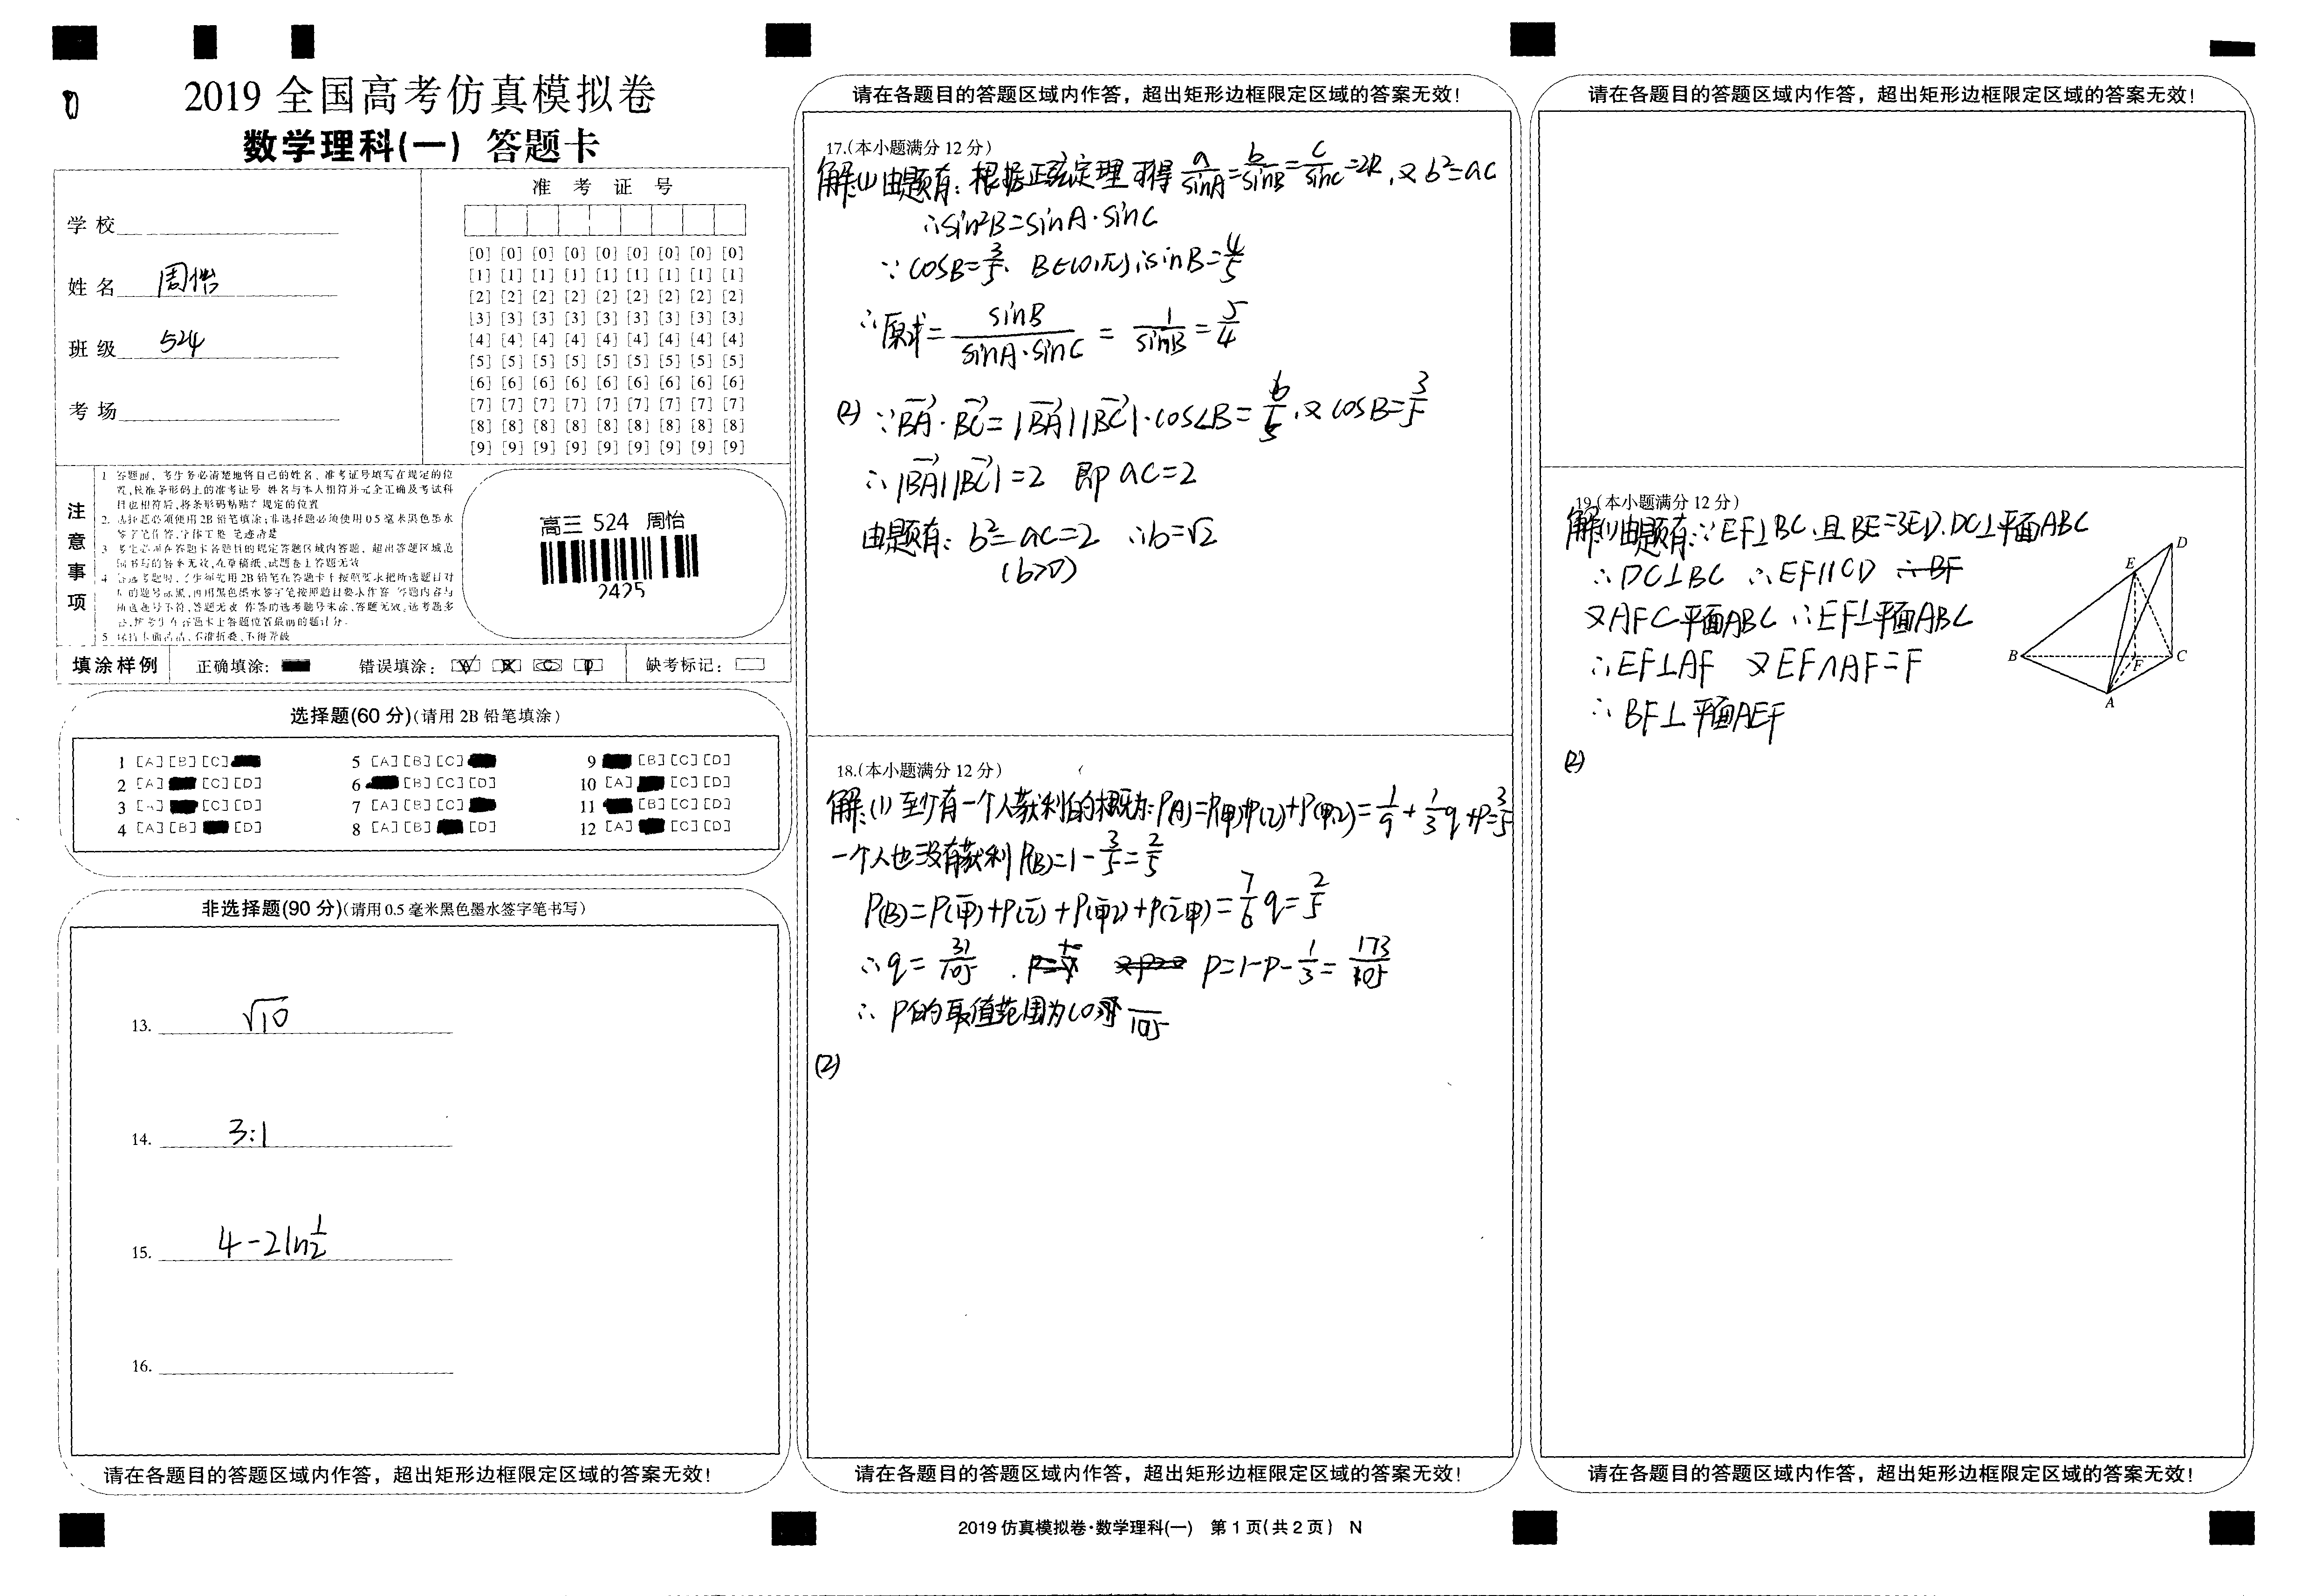 2019 全国高考仿真模拟卷
数学理科(一) 答题卡
准 考 证 号
学 校
姓 名 周怡
班 级 524
考 场
[0] [0] [0] [0] [0] [0] [0] [0] [0]
[1] [1] [1] [1] [1] [1] [1] [1] [1]
[2] [2] [2] [2] [2] [2] [2] [2] [2]
[3] [3] [3] [3] [3] [3] [3] [3] [3]
[4] [4] [4] [4] [4] [4] [4] [4] [4]
[5] [5] [5] [5] [5] [5] [5] [5] [5]
[6] [6] [6] [6] [6] [6] [6] [6] [6]
[7] [7] [7] [7] [7] [7] [7] [7] [7]
[8] [8] [8] [8] [8] [8] [8] [8] [8]
[9] [9] [9] [9] [9] [9] [9] [9] [9]
注意事项
1 答题前，考生务必清楚地将自己的姓名、准考证号填写在规定的位
置,核准条形码上的准考证号 姓名与本人相符并完全正确及考试科
目也相符后,将条形码粘贴在规定的位置
2. 选择题必须使用2B铅笔填涂;非选择题必须使用0.5毫米黑色墨水
签字笔作答,字体工整 笔迹清楚
3 考生必须在答题卡各题目的规定答题区域内答题，超出答题区域范
围书写的答案无效,在草稿纸、试题卷上答题无效
5 保持卡面清洁、不准折叠、不得弄破
高三 524 周怡
2425
填涂样例 正确填涂: 错误填涂: 缺考标记:
选择题(60 分)(请用 2B 铅笔填涂)
1 [A][B][C] 5 [A][B][C] 9 [B][C][D]
2 [A] [C][D] 6 [B][C][D] 10 [A] [C][D]
3 [A] [C][D] 7 [A][B][C] 11 [B][C][D]
4 [A][B] [D] 8 [A][B] [D] 12 [A] [C][D]
非选择题(90 分)(请用 0.5 毫米黑色墨水签字笔书写)
13. √10
14. 3:1
15. 4-2ln1/2
16.
请在各题目的答题区域内作答，超出矩形边框限定区域的答案无效!
请在各题目的答题区域内作答，超出矩形边框限定区域的答案无效!
17.(本小题满分 12 分)
解(1) 由题有: 根据正弦定理 可得 a/sinA=b/sinB=c/sinC=2R, 又 b²=ac
∴sin²B=sinA·sinC
∵cosB=3/5, B∈(0,π) ∴sinB=4/5
∴原式=sinB/(sinA·sinC) = 1/sinB = 5/4
(2) ∵BA·BC=|BA||BC|·cos∠B=6/5, 又 cosB=3/5
∴|BA||BC|=2 即 ac=2
由题有: b²=ac=2 ∴b=√2
(b>0)
18.(本小题满分 12 分)
解:(1) 至少有一个人获利的概率为:P(A)=P(甲)+P(乙)+P(甲乙)=1/9+1/3q+P=3/5
一个人也没有获利 P(B)=1-3/5=2/5
P(B)=P(甲)+P(乙)+P(甲乙)+P(乙甲)=7/6q=2/5
∴q=31/105 . P=1-P-1/3=173/105
∴P的取值范围为(0
(2)
请在各题目的答题区域内作答，超出矩形边框限定区域的答案无效!
2019 仿真模拟卷·数学理科(一) 第 1 页(共 2 页) N
请在各题目的答题区域内作答，超出矩形边框限定区域的答案无效!
19.(本小题满分 12 分)
解(1)由题有:∵EF⊥BC,且BE=3ED,DC⊥平面ABC
∴DC⊥BC ∴EF∥CD ∴BF
又AF⊂平面ABC ∴EF⊥平面ABC
∴EF⊥AF 又EF∩AF=F
∴BF⊥平面AEF
(2)
D
E
B
F
C
A
请在各题目的答题区域内作答，超出矩形边框限定区域的答案无效!